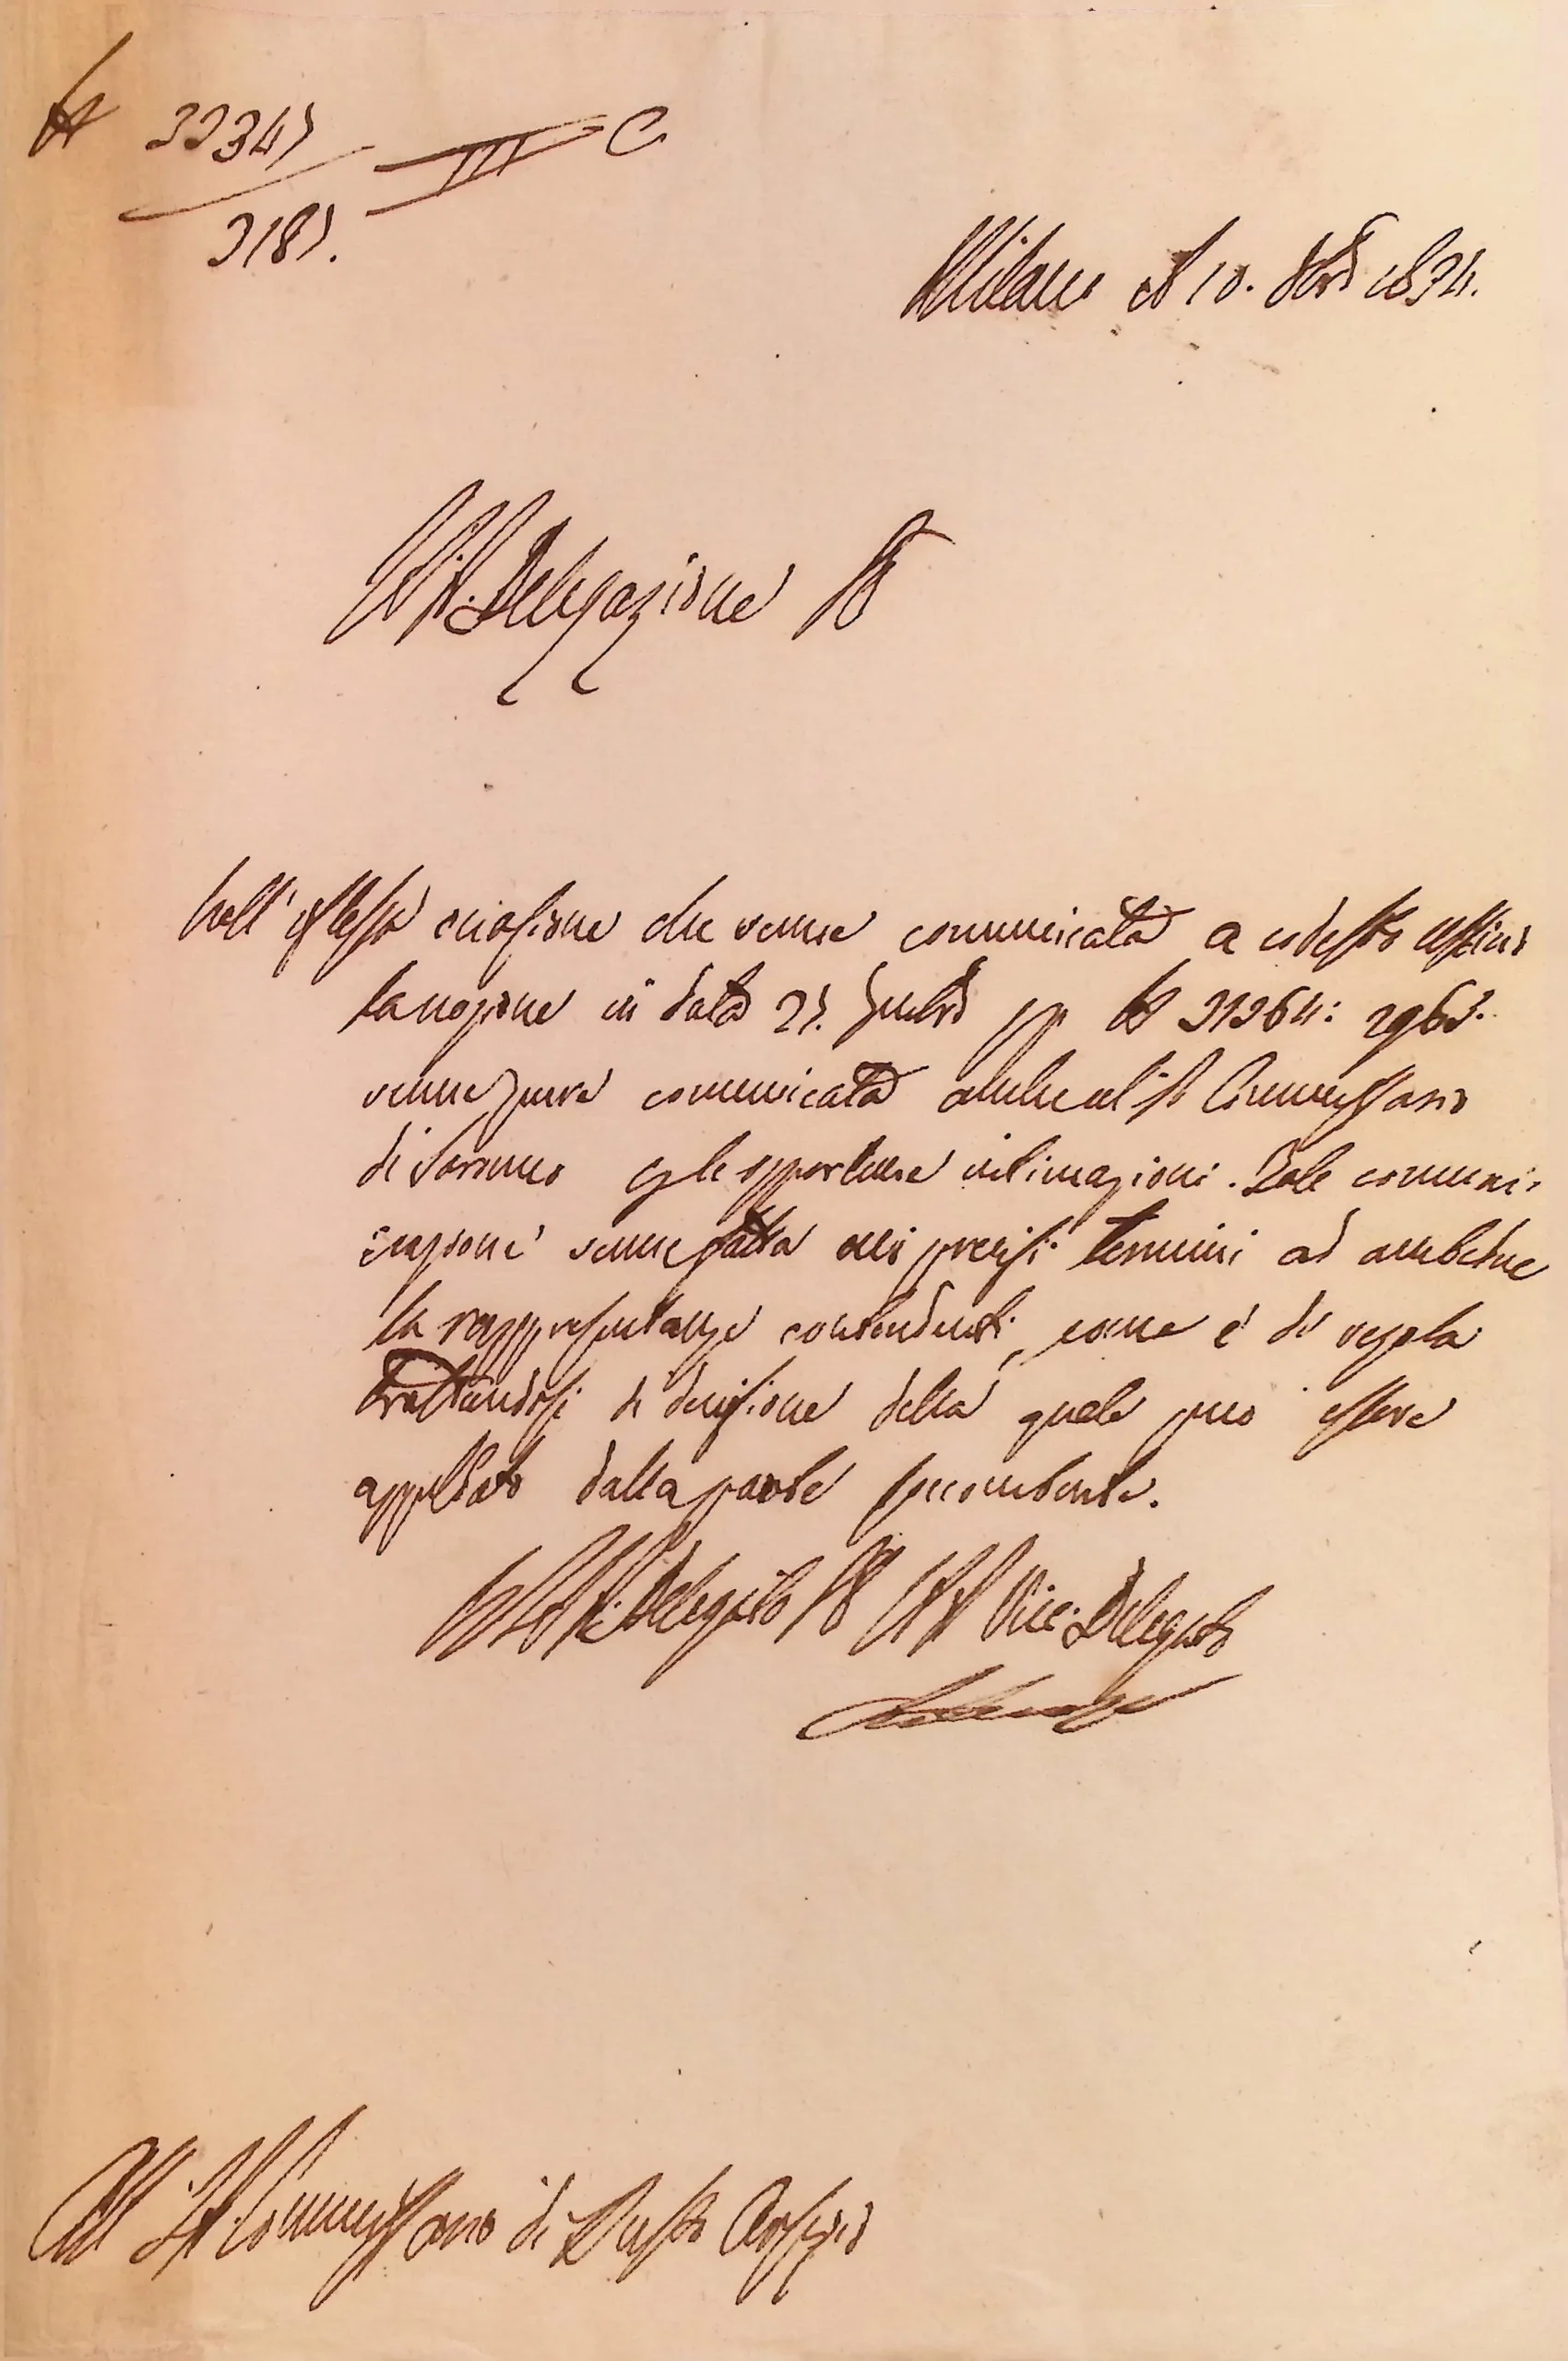 N 33345 III C
3185.
Milano il 10. 8bre 1834.
I. R. Delegazione P.
Nell'istessa occasione che venne comunicata a codesto Ufficio
la nozione in data 25. Smbre pp N 31264: 2963.
venne pure comunicata anche al R. Commissario
di Saronno p le opportune intimazioni. Tale comuni-
cazione venne fatta nei precisi termini ad ambedue
le rappresentanze contendenti, come è di regola
trattandosi di decisione della quale può essere
appellato dalla parte soccombente.
R. Delegato P. I. R. Vice-Delegato
All' I. R. Commissario di Busto Arsizio